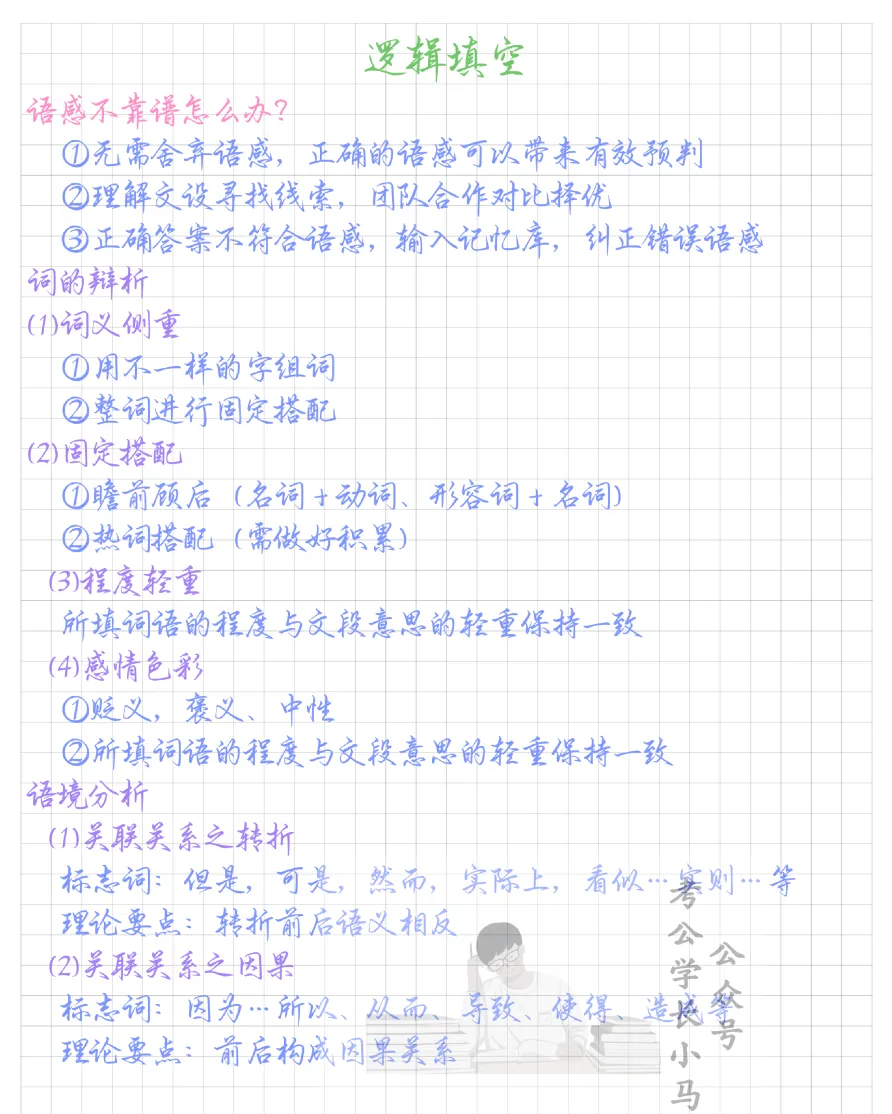 逻辑填空
语感不靠谱怎么办？
①无需舍弃语感，正确的语感可以带来有效预判
②理解文设寻找线索，团队合作对比择优
③正确答案不符合语感，输入记忆库，纠正错误语感
词的辩析
(1)词义侧重
①用不一样的字组词
②整词进行固定搭配
(2)固定搭配
①瞻前顾后（名词+动词、形容词+名词）
②热词搭配（需做好积累）
(3)程度轻重
所填词语的程度与文段意思的轻重保持一致
(4)感情色彩
①贬义，褒义、中性
②所填词语的程度与文段意思的轻重保持一致
语境分析
(1)关联关系之转折
标志词：但是，可是，然而，实际上，看似…实则…等
理论要点：转折前后语义相反
(2)关联关系之因果
标志词：因为…所以、从而、导致、使得、造成等
理论要点：前后构成因果关系
公众号
考公学长小马